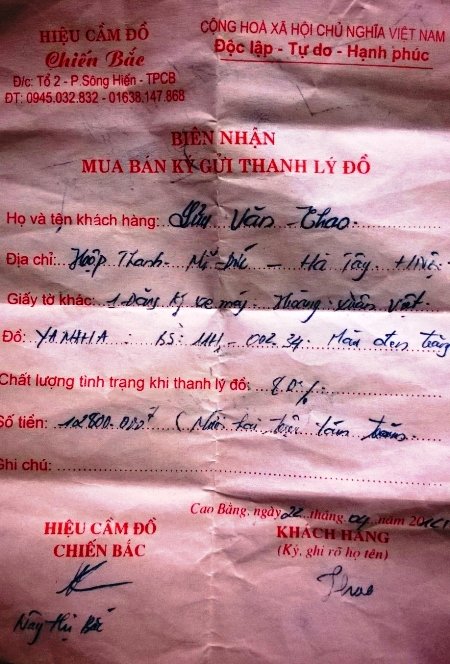 HIỆU CẦM ĐỒ
Chiến Bắc
Đ/c: Tổ 2 - P.Sông Hiến - TPCB
ĐT: 0945.032.832 - 01638.147.868
CỘNG HOÀ XÃ HỘI CHỦ NGHĨA VIỆT NAM
Độc lập - Tự do - Hạnh phúc
BIÊN NHẬN
MUA BÁN KÝ GỬI THANH LÝ ĐỒ
Họ và tên khách hàng: Văn Thao
Địa chỉ: Hợp Thanh - Mỹ Đức - Hà Tây
Giấy tờ khác: 1 Đăng ký xe máy
Đồ: YAMAHA
Chất lượng tình trạng khi thanh lý đồ:
Số tiền: 12800.000đ (Mười hai triệu tám trăm
Ghi chú:
Cao Bằng, ngày 22 tháng 09 năm
HIỆU CẦM ĐỒ
CHIẾN BẮC
KHÁCH HÀNG
(Ký, ghi rõ họ tên)
Thao